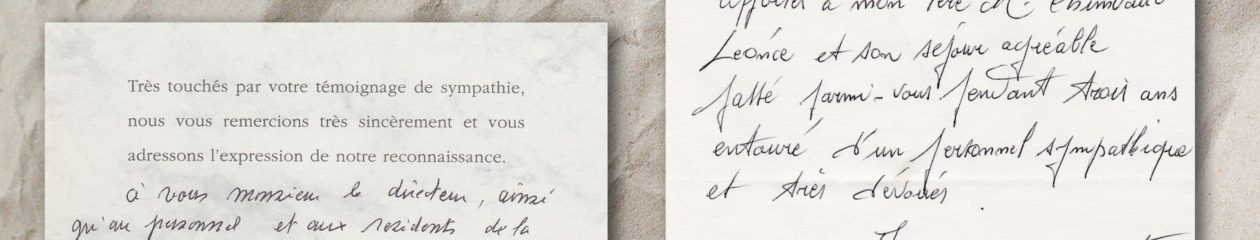 Très touchés par votre témoignage de sympathie,
nous vous remercions très sincèrement et vous
adressons l'expression de notre reconnaissance.
à vous monsieur le directeur, ainsi
qu'au personnel et aux residents de la
à mon Père Mr.
Leonce et son sejour agréable
passé parmi-vous pendant trois ans
entouré d'un personnel sympathique
et très dévoués.